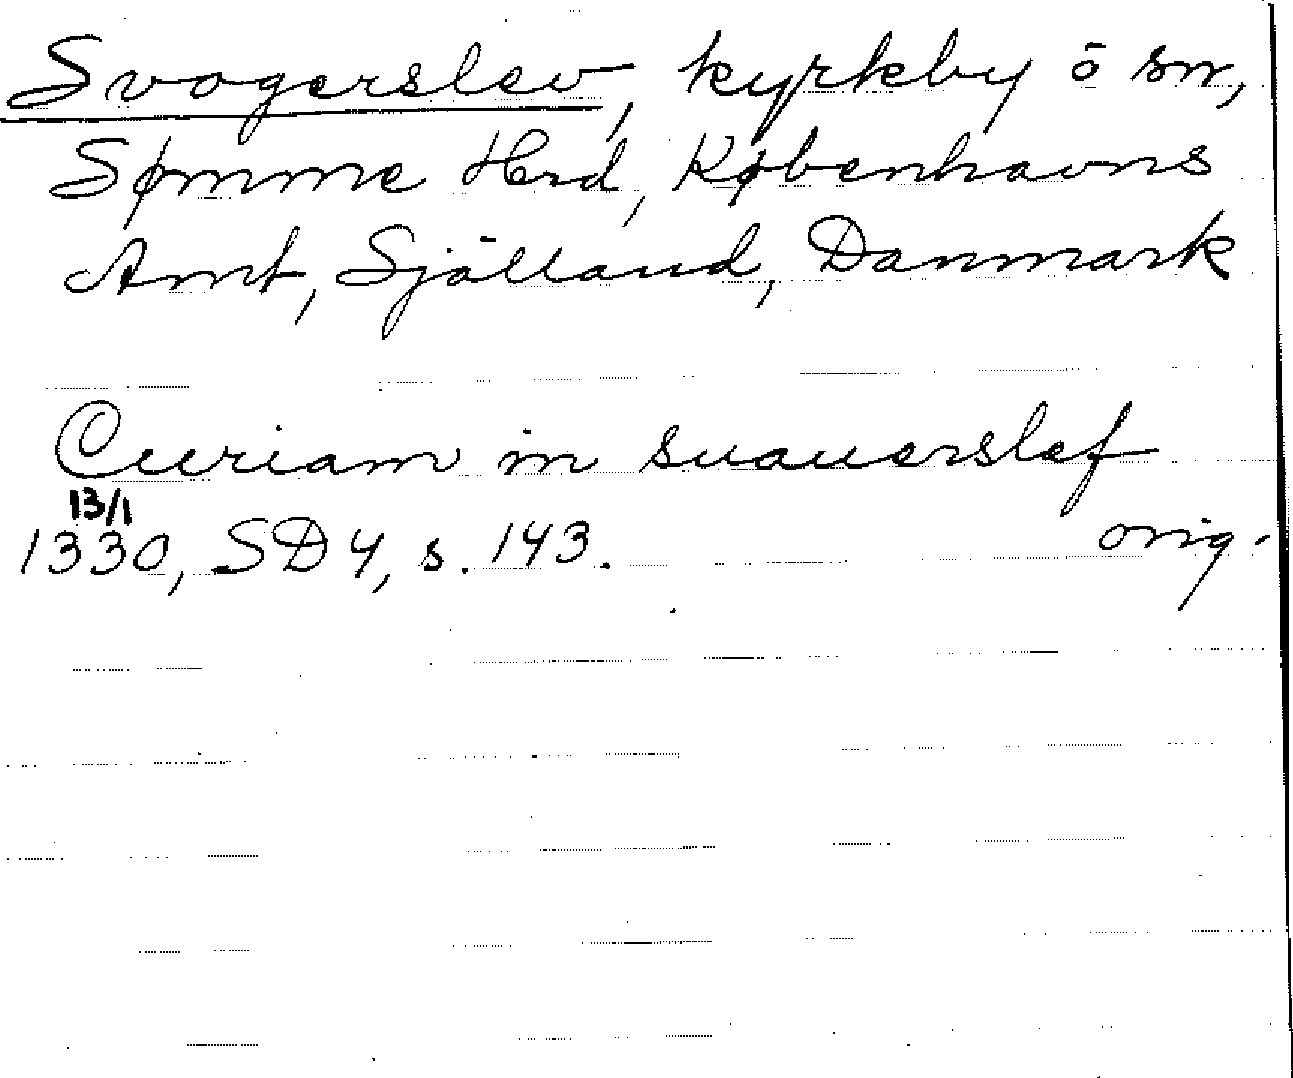 Svogerslev, kyrkby ō sn,
Sømme Hrd, Københavns
Amt, Sjölland, Danmark
Curiam in suauerslef
13/1
1330, SD 4, s. 143. orig.